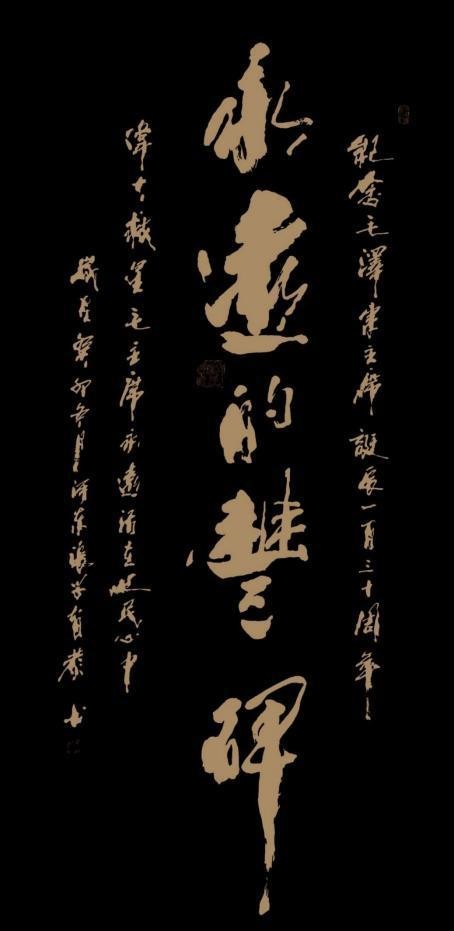 紀念毛澤東主席誕辰一百三十周年
永遠的豐碑
偉大救星毛主席永遠活在民心中
歲在癸卯冬月河東張學恭書